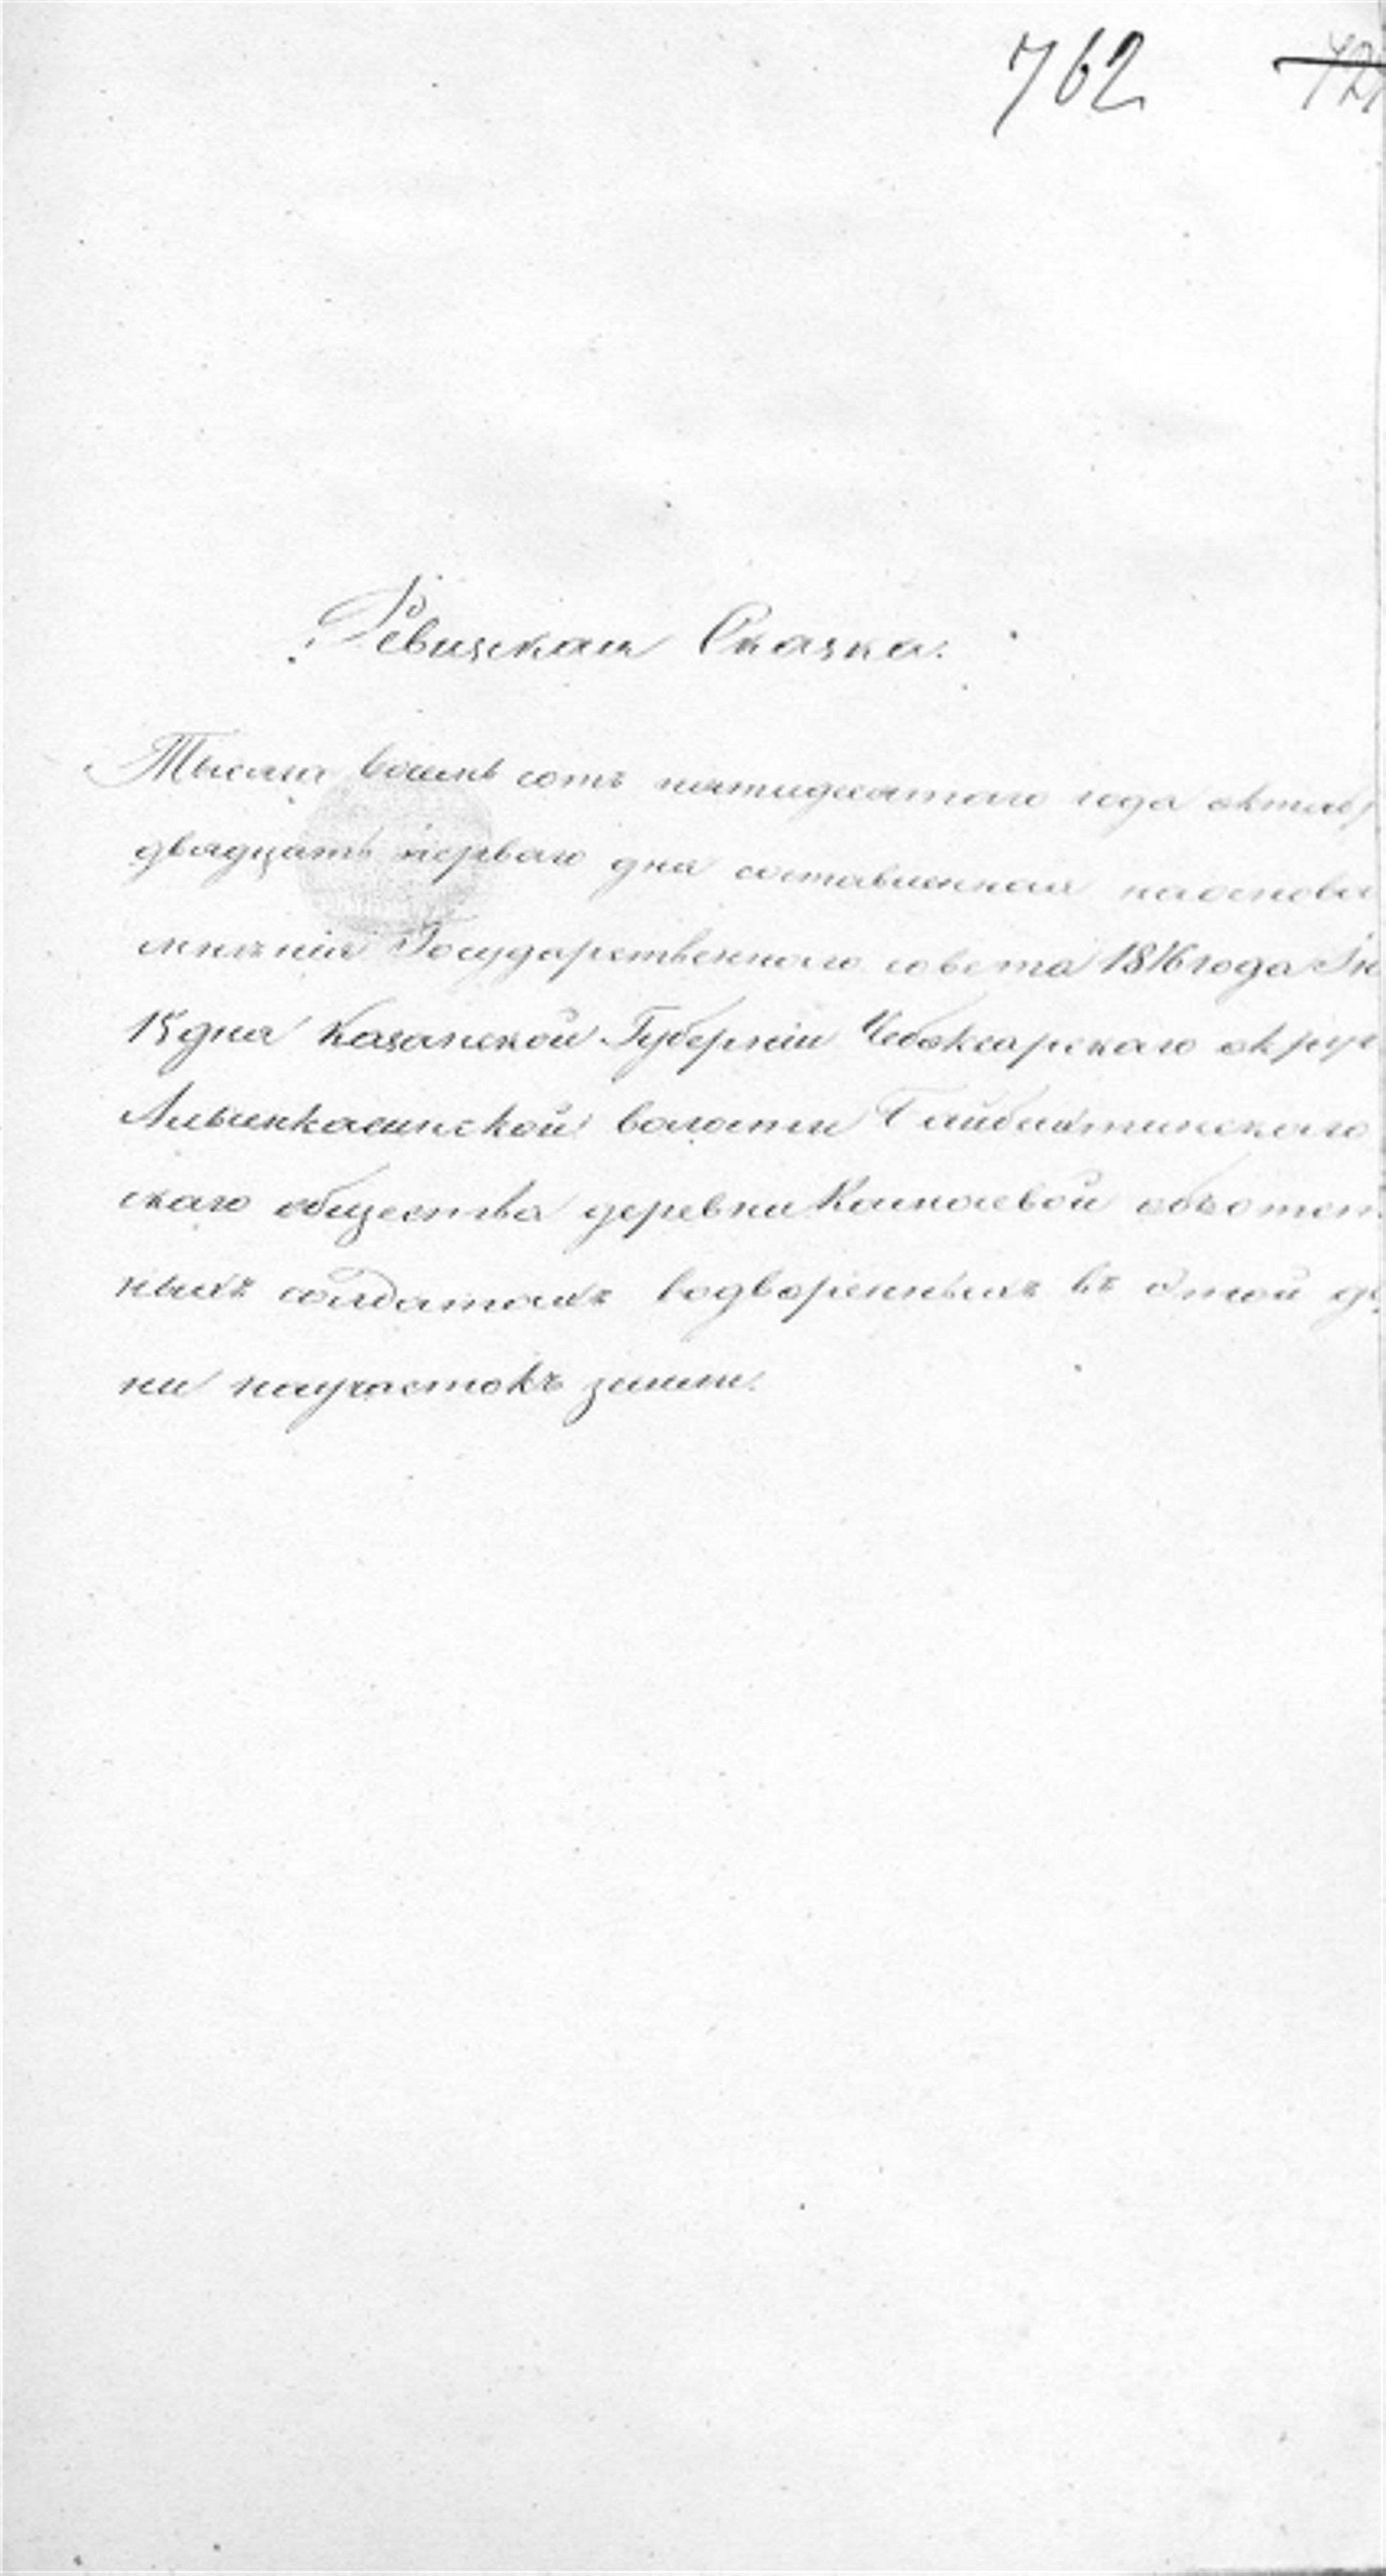 762
Ревизская Сказка.
Тысяча восемь сотъ пятидесятаго года октяб
двадцать перваго дня составленная наоснова
мнѣнія Государственнаго совета 1816 года
15 дня Казанской Губерніи Чебоксарскаго округ
волости
скаго общества деревни
ныхъ солдатахъ водворенныхъ въ этой де
ни научастокъ земли.